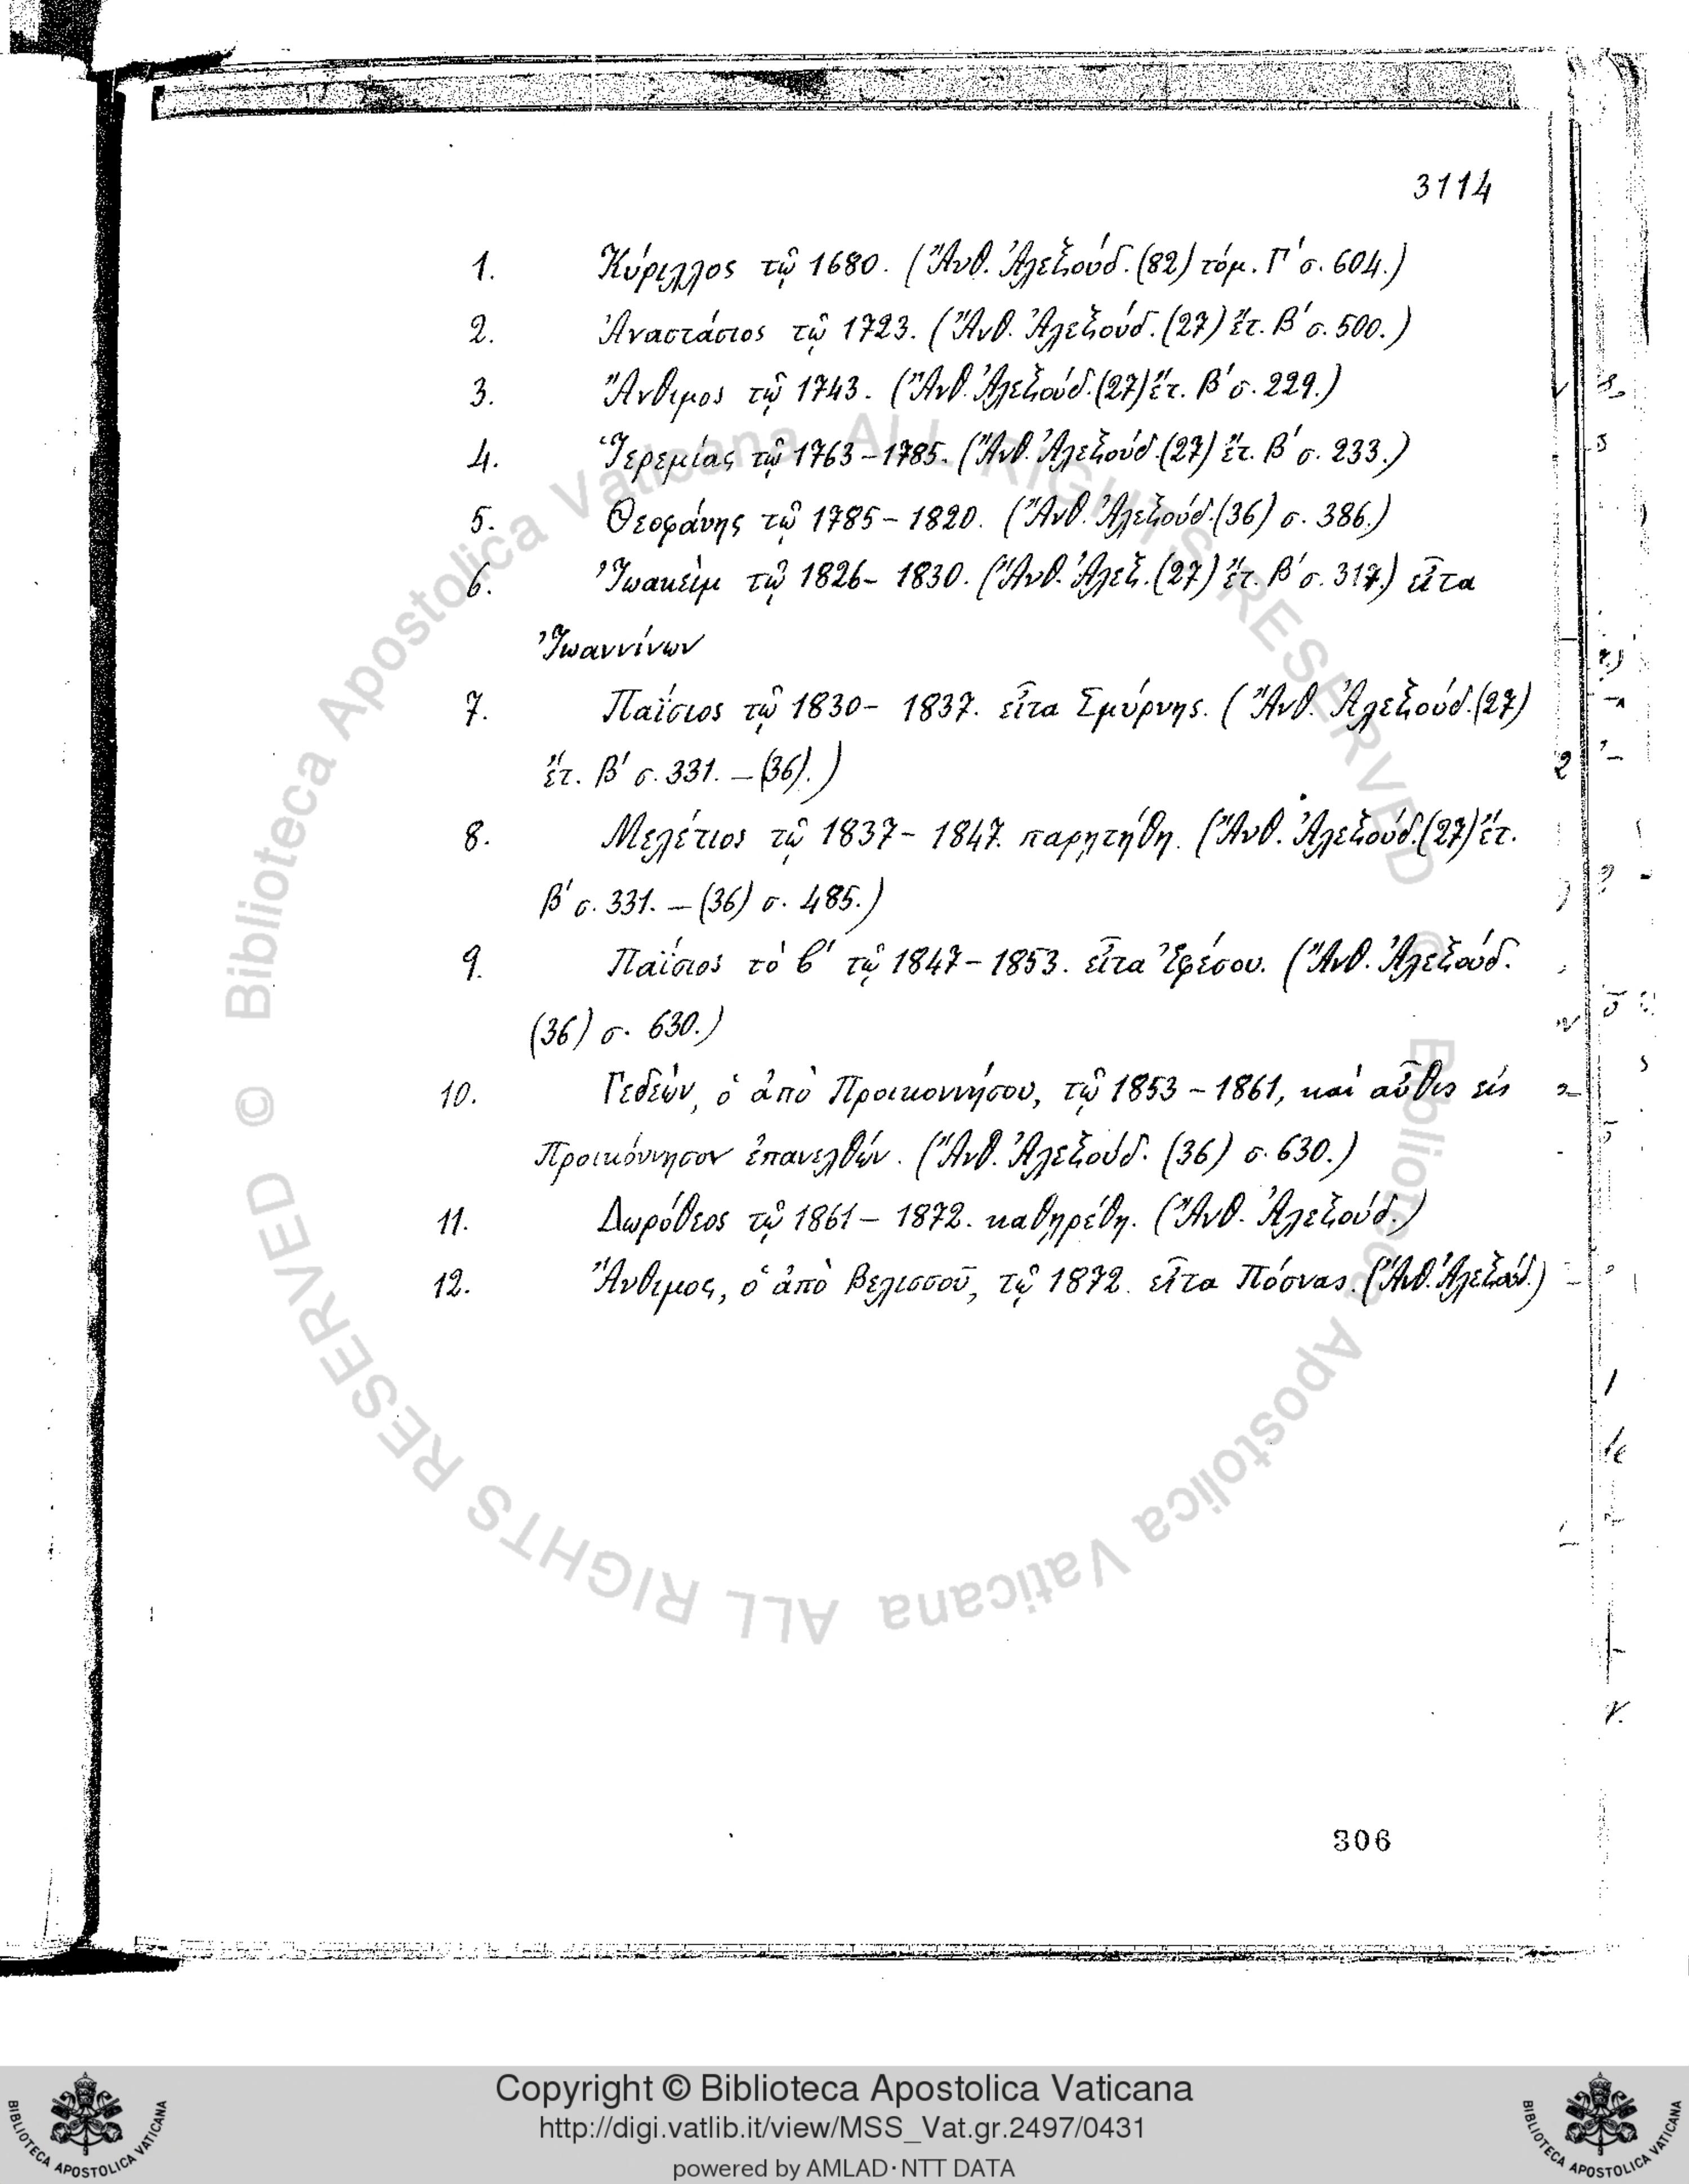 3114
1. Κύριλλος τῷ 1680. (Ἄνθ. Ἀλεξούδ. (82) τόμ. Γ' σ. 604.)
2. Ἀναστάσιος τῷ 1723. (Ἄνθ. Ἀλεξούδ. (27) ἔτ. Β' σ. 500.)
3. Ἄνθιμος τῷ 1743. (Ἄνθ. Ἀλεξούδ. (27) ἔτ. Β' σ. 229.)
4. Ἱερεμίας τῷ 1763-1785. (Ἄνθ. Ἀλεξούδ. (27) ἔτ. Β' σ. 233.)
5. Θεοφάνης τῷ 1785-1820. (Ἄνθ. Ἀλεξούδ. (36) σ. 386.)
6. Ἰωακεὶμ τῷ 1826-1830. (Ἄνθ. Ἀλεξ. (27) ἔτ. Β' σ. 317.) εἶτα
Ἰωαννίνων
7. Παΐσιος τῷ 1830-1837. εἶτα Σμύρνης. (Ἄνθ. Ἀλεξούδ. (27)
ἔτ. Β' σ. 331. – (36).)
8. Μελέτιος τῷ 1837-1847. παρῃτήθη. (Ἄνθ. Ἀλεξούδ. (27) ἔτ.
Β' σ. 331. – (36) σ. 485.)
9. Παΐσιος τὸ β' τῷ 1847-1853. εἶτα Ἐφέσου. (Ἄνθ. Ἀλεξούδ.
(36) σ. 630.)
10. Γεδεὼν, ὁ ἀπὸ Προικοννήσου, τῷ 1853-1861, καὶ αὖθις εἰς
Προικόννησον ἐπανελθών. (Ἄνθ. Ἀλεξούδ. (36) σ. 630.)
11. Δωρόθεος τῷ 1861-1872. καθῃρέθη. (Ἄνθ. Ἀλεξούδ.)
12. Ἄνθιμος, ὁ ἀπὸ Βελισσοῦ, τῷ 1872. εἶτα Πόσνας. (Ἄνθ. Ἀλεξούδ.)
306
© Biblioteca Apostolica Vaticana ALL RIGHTS RESERVED
© Biblioteca Apostolica Vaticana ALL RIGHTS RESERVED
Copyright © Biblioteca Apostolica Vaticana
http://digi.vatlib.it/view/MSS_Vat.gr.2497/0431
powered by AMLAD·NTT DATA
BIBLIOTECA APOSTOLICA VATICANA
BIBLIOTECA APOSTOLICA VATICANA